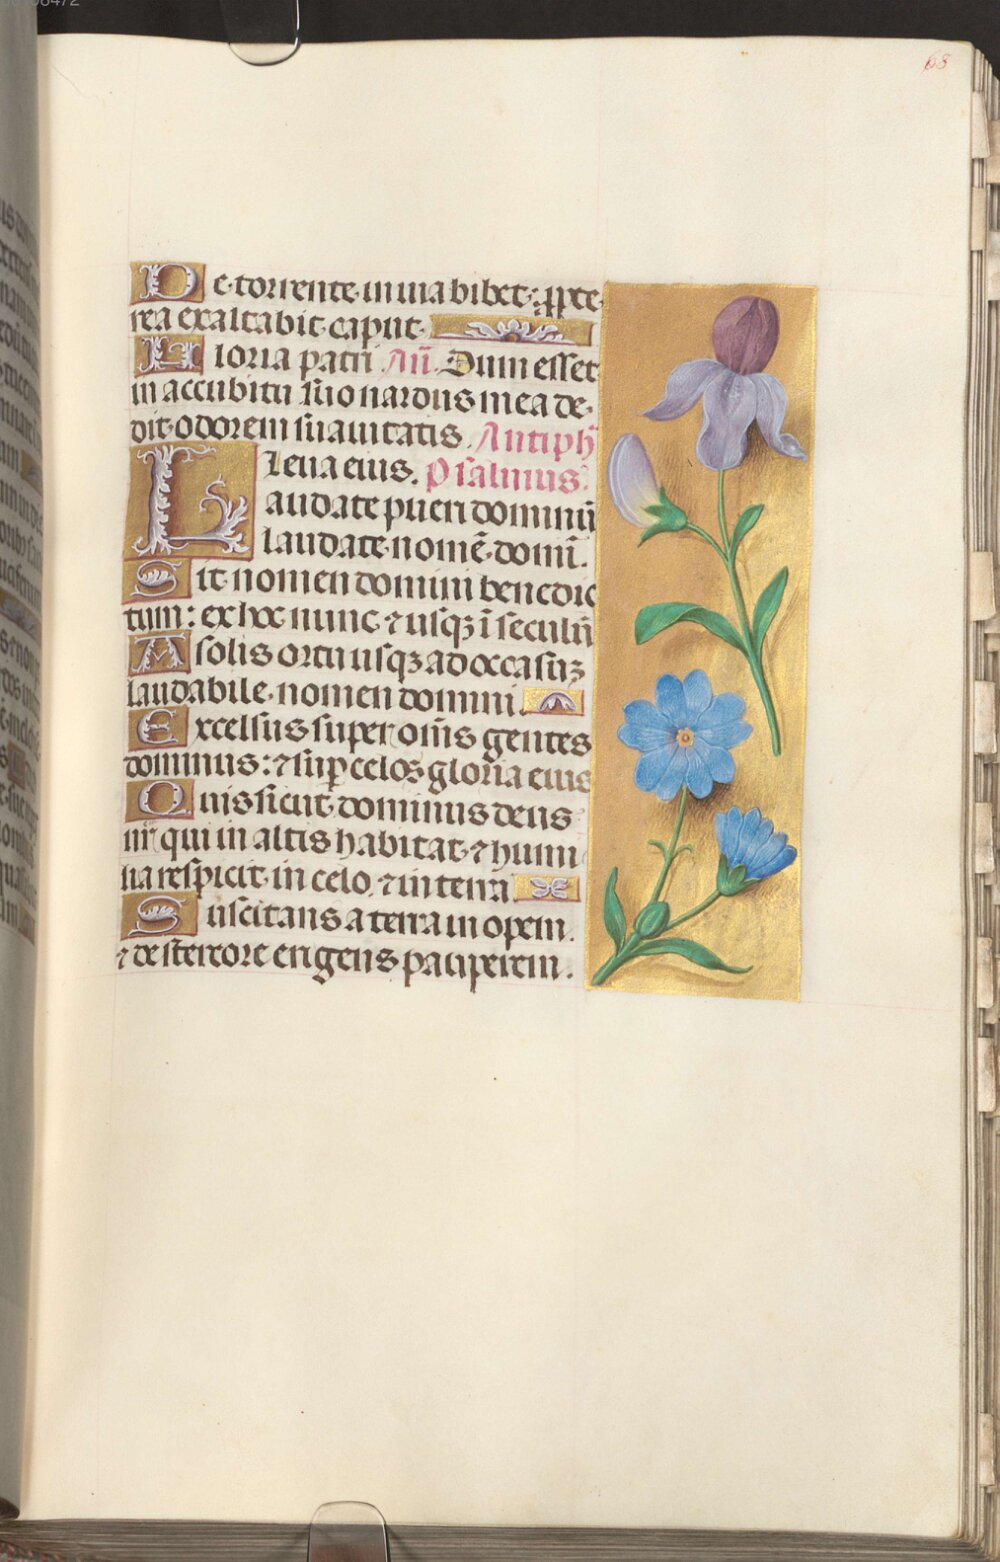 68
De torrente in via bibet: ꝓpte
rea exaltabit caput.
Gloria patri Añ. Dum esset
in accubitu suo nardus mea de
dit odorem suauitatis. Antiph̄
Leua eius. Psalmus.
Laudate pueri dominū
laudate nomē domī.
Sit nomen domini benedic
tum: ex hoc nunc ⁊ usqꝫ ī seculū
A solis ortu usqꝫ ad occasuꝫ
laudabile nomen domini.
Excelsus super om̄s gentes
dominus: ⁊ sup̄ celos gloria eius
Quis sicut dominus deus
nr̄ qui in altis habitat ⁊ humi
lia respicit in celo ⁊ in terra
Suscitans a terra inopem.
⁊ de stercore erigens pauperem.